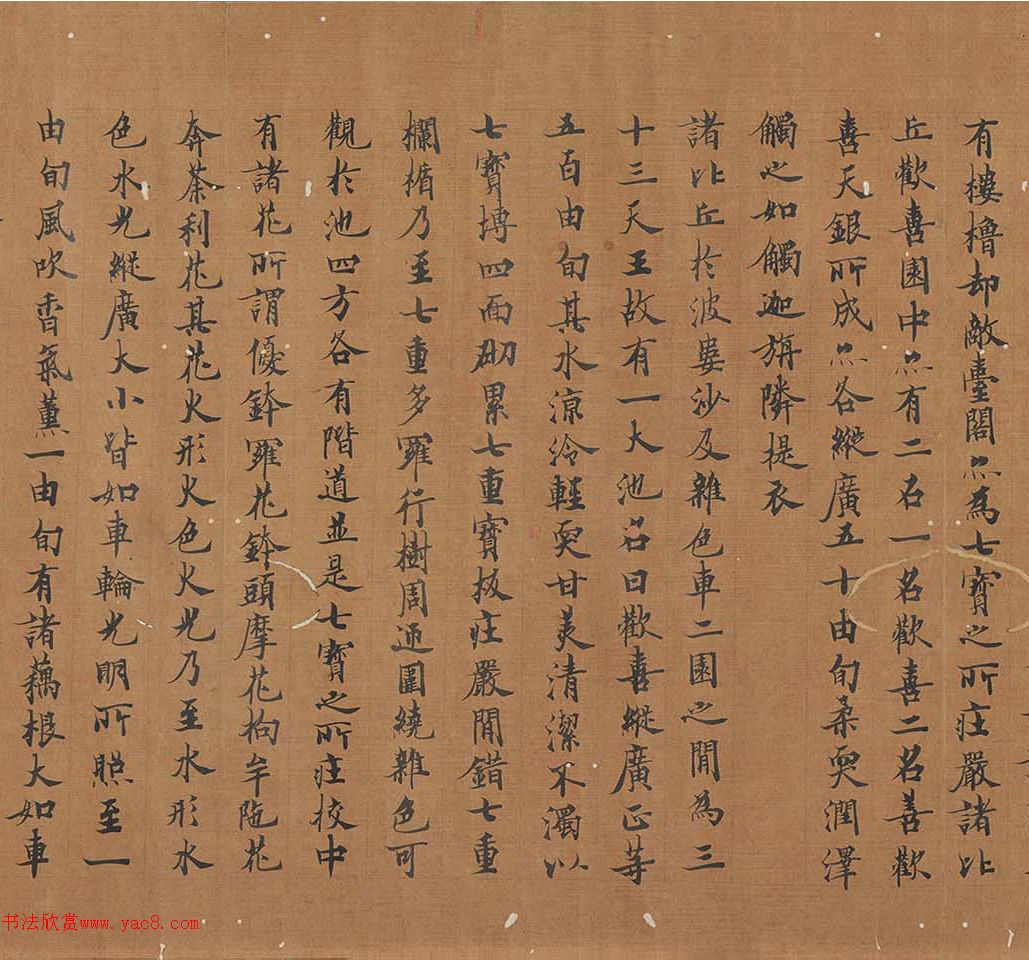 有樓櫓却敵臺閣亦為七寶之所莊嚴諸比
丘歡喜園中亦有二石一名歡喜二名善歡
喜天銀所成亦各縱廣五十由旬柔耎潤澤
觸之如觸迦旃隣提衣
諸比丘於波婁沙及雜色車二園之間為三
十三天王故有一大池名曰歡喜縱廣正等
五百由旬其水涼冷輕耎甘美清潔不濁以
七寶塼四面砌累七重寶板莊嚴間錯七重
欄楯乃至七重多羅行樹周迊圍繞雜色可
觀於池四方各有階道並是七寶之所莊挍中
有諸花所謂優鉢羅花鉢頭摩花拘牟陁花
奔荼利花其花火形火色火光乃至水形水
色水光縱廣大小皆如車輪光明所照至一
由旬風吹香氣薰一由旬有諸藕根大如車
书法欣赏www.yac8.com